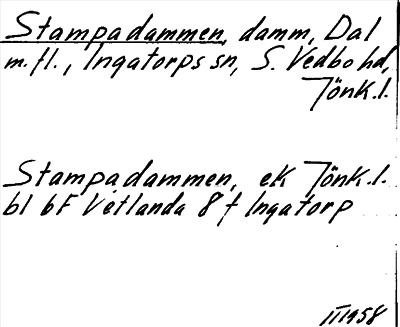 Stampadammen, damm, Dal
m.fl., Ingatorps sn, S. Vedbo hd,
Jönk.l.
Stampadammen, ek Jönk.l.
bl 6F Vetlanda 8 f Ingatorp
II 1958